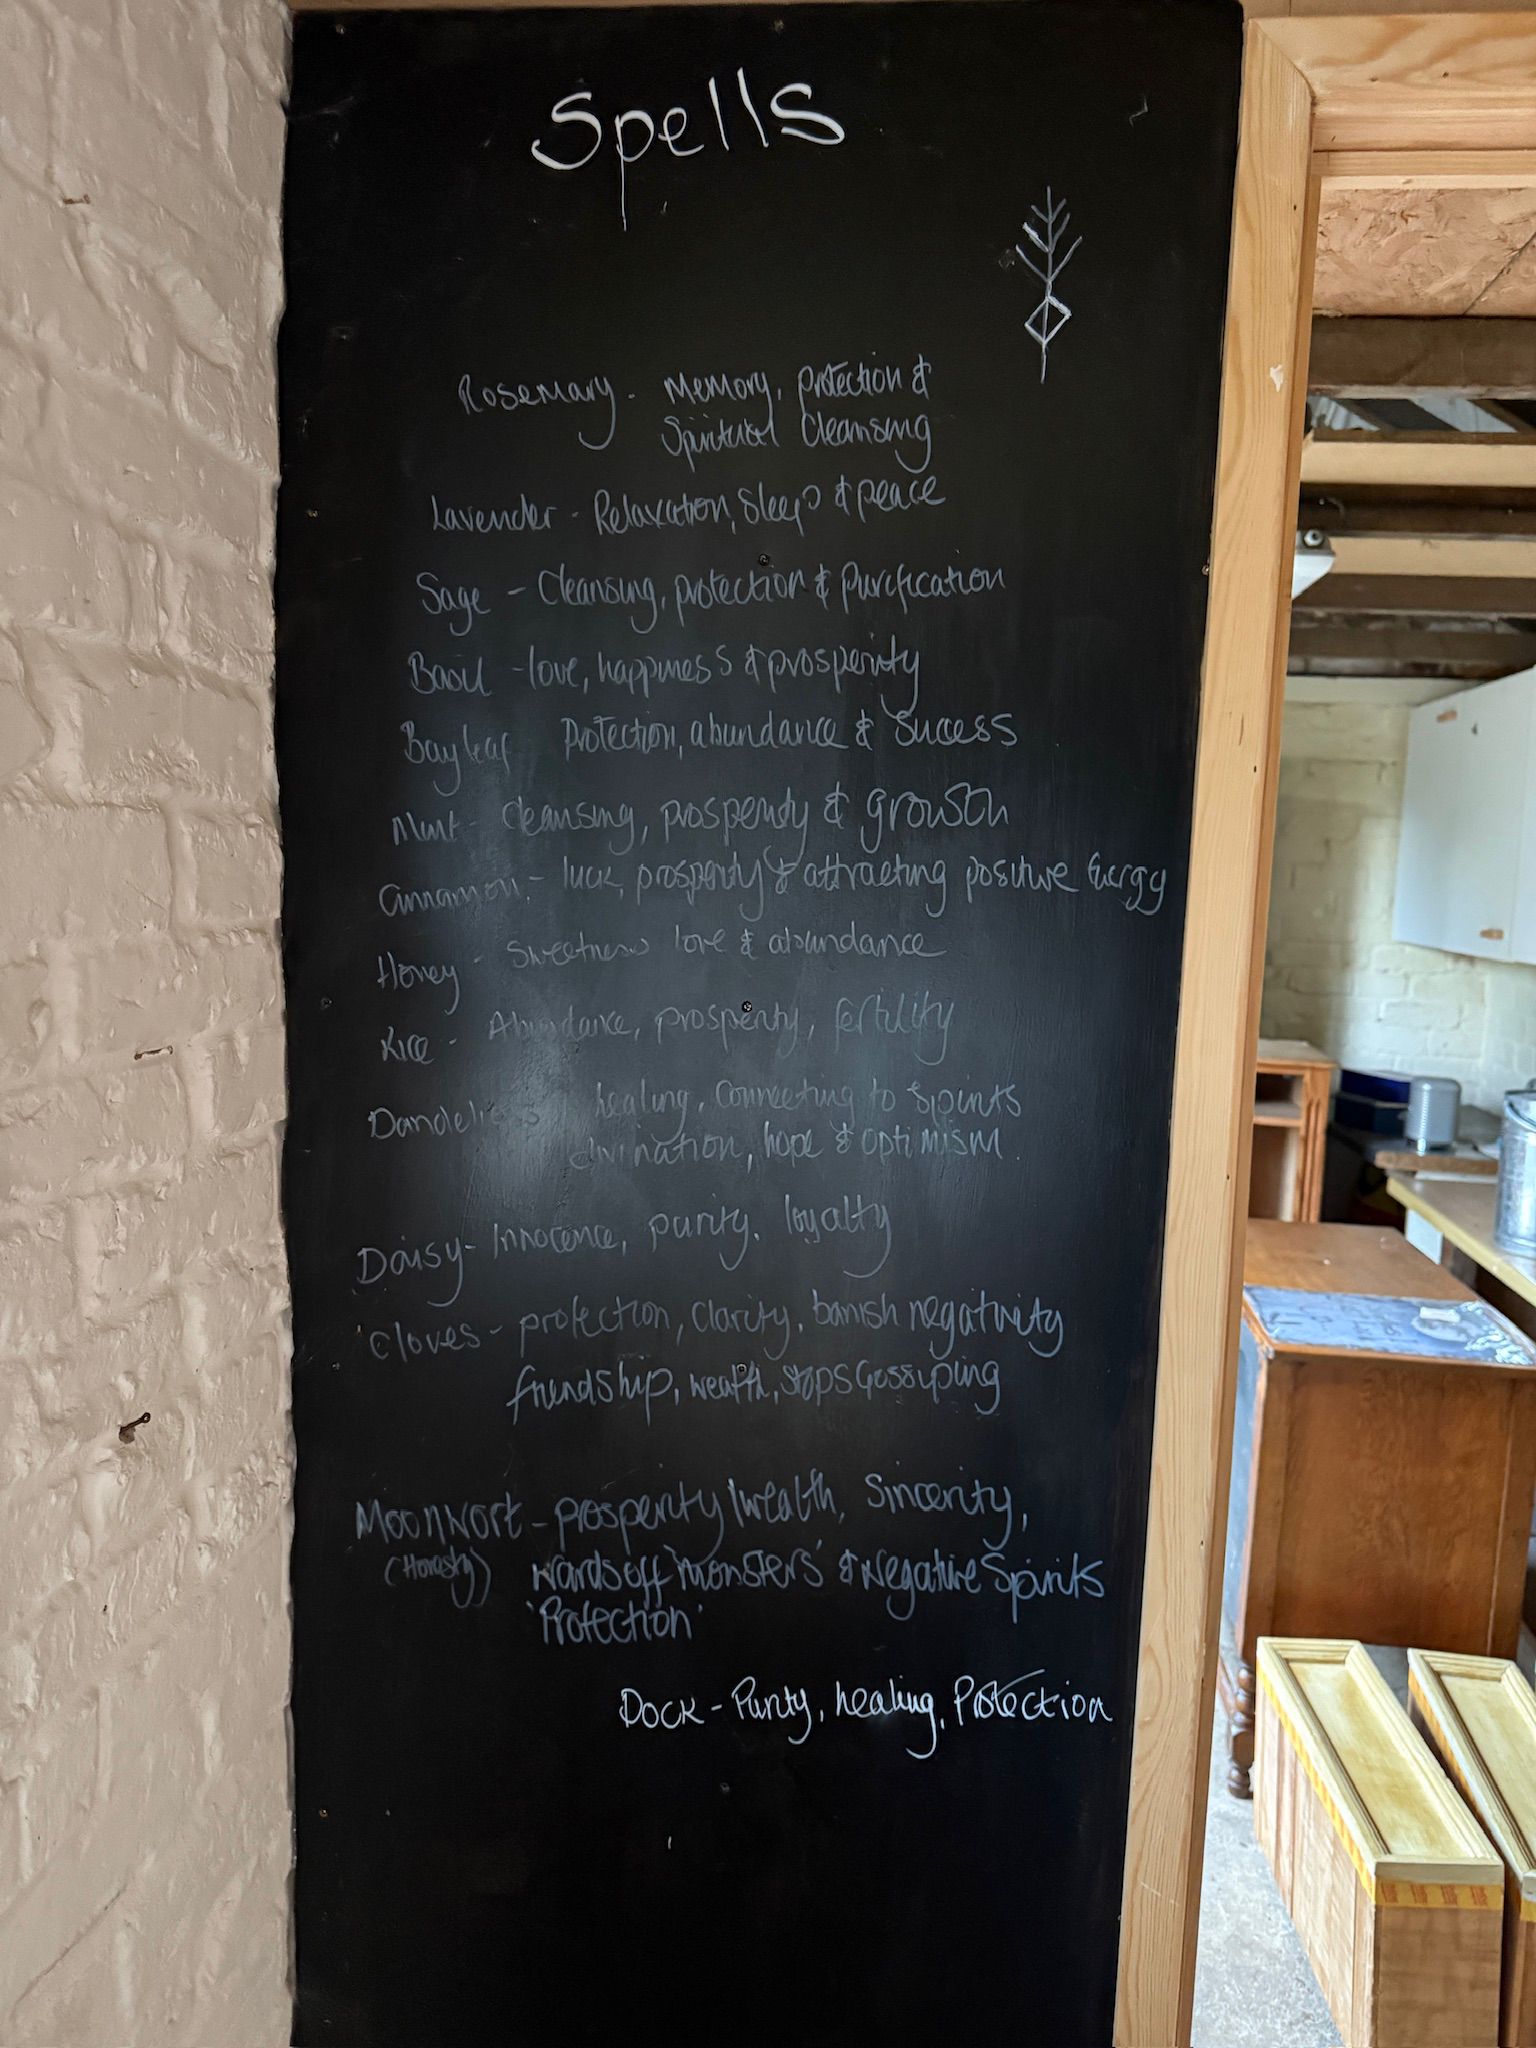 Spells
Rosemary - Memory, protection &
Spiritual Cleansing
Lavender - Relaxation, Sleep & peace
Sage - Cleansing, protection & Purification
Basil - love, happiness & prosperity
Bay leaf Protection, abundance & Success
Mint - Cleansing, prosperity & growth
Cinnamon - luck, prosperity & attracting positive Energy
Honey - Sweetness love & abundance
Rice - Abundance, prosperity, fertility
healing, Connecting to Spirits
divination, hope & optimism.
Daisy - Innocence, purity, loyalty
Cloves - protection, Clarity, banish negativity
friendship, wealth, stops Gossiping
Moonwort - prosperity/wealth, Sincerity,
(Honesty) Wards off 'monsters' & Negative Spirits
'Protection'
Dock - Purity, healing, Protection